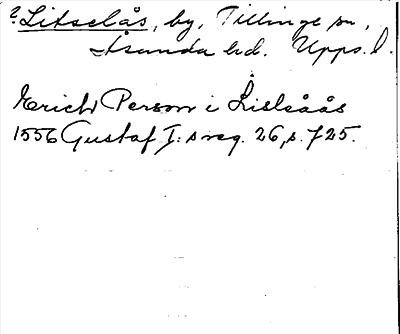 ? Litselås, by, Tillinge sn,
Åsunda hd. Upps. l.
Erich Person i Lislåås
1556 Gustaf I: s reg. 26, s. 725.